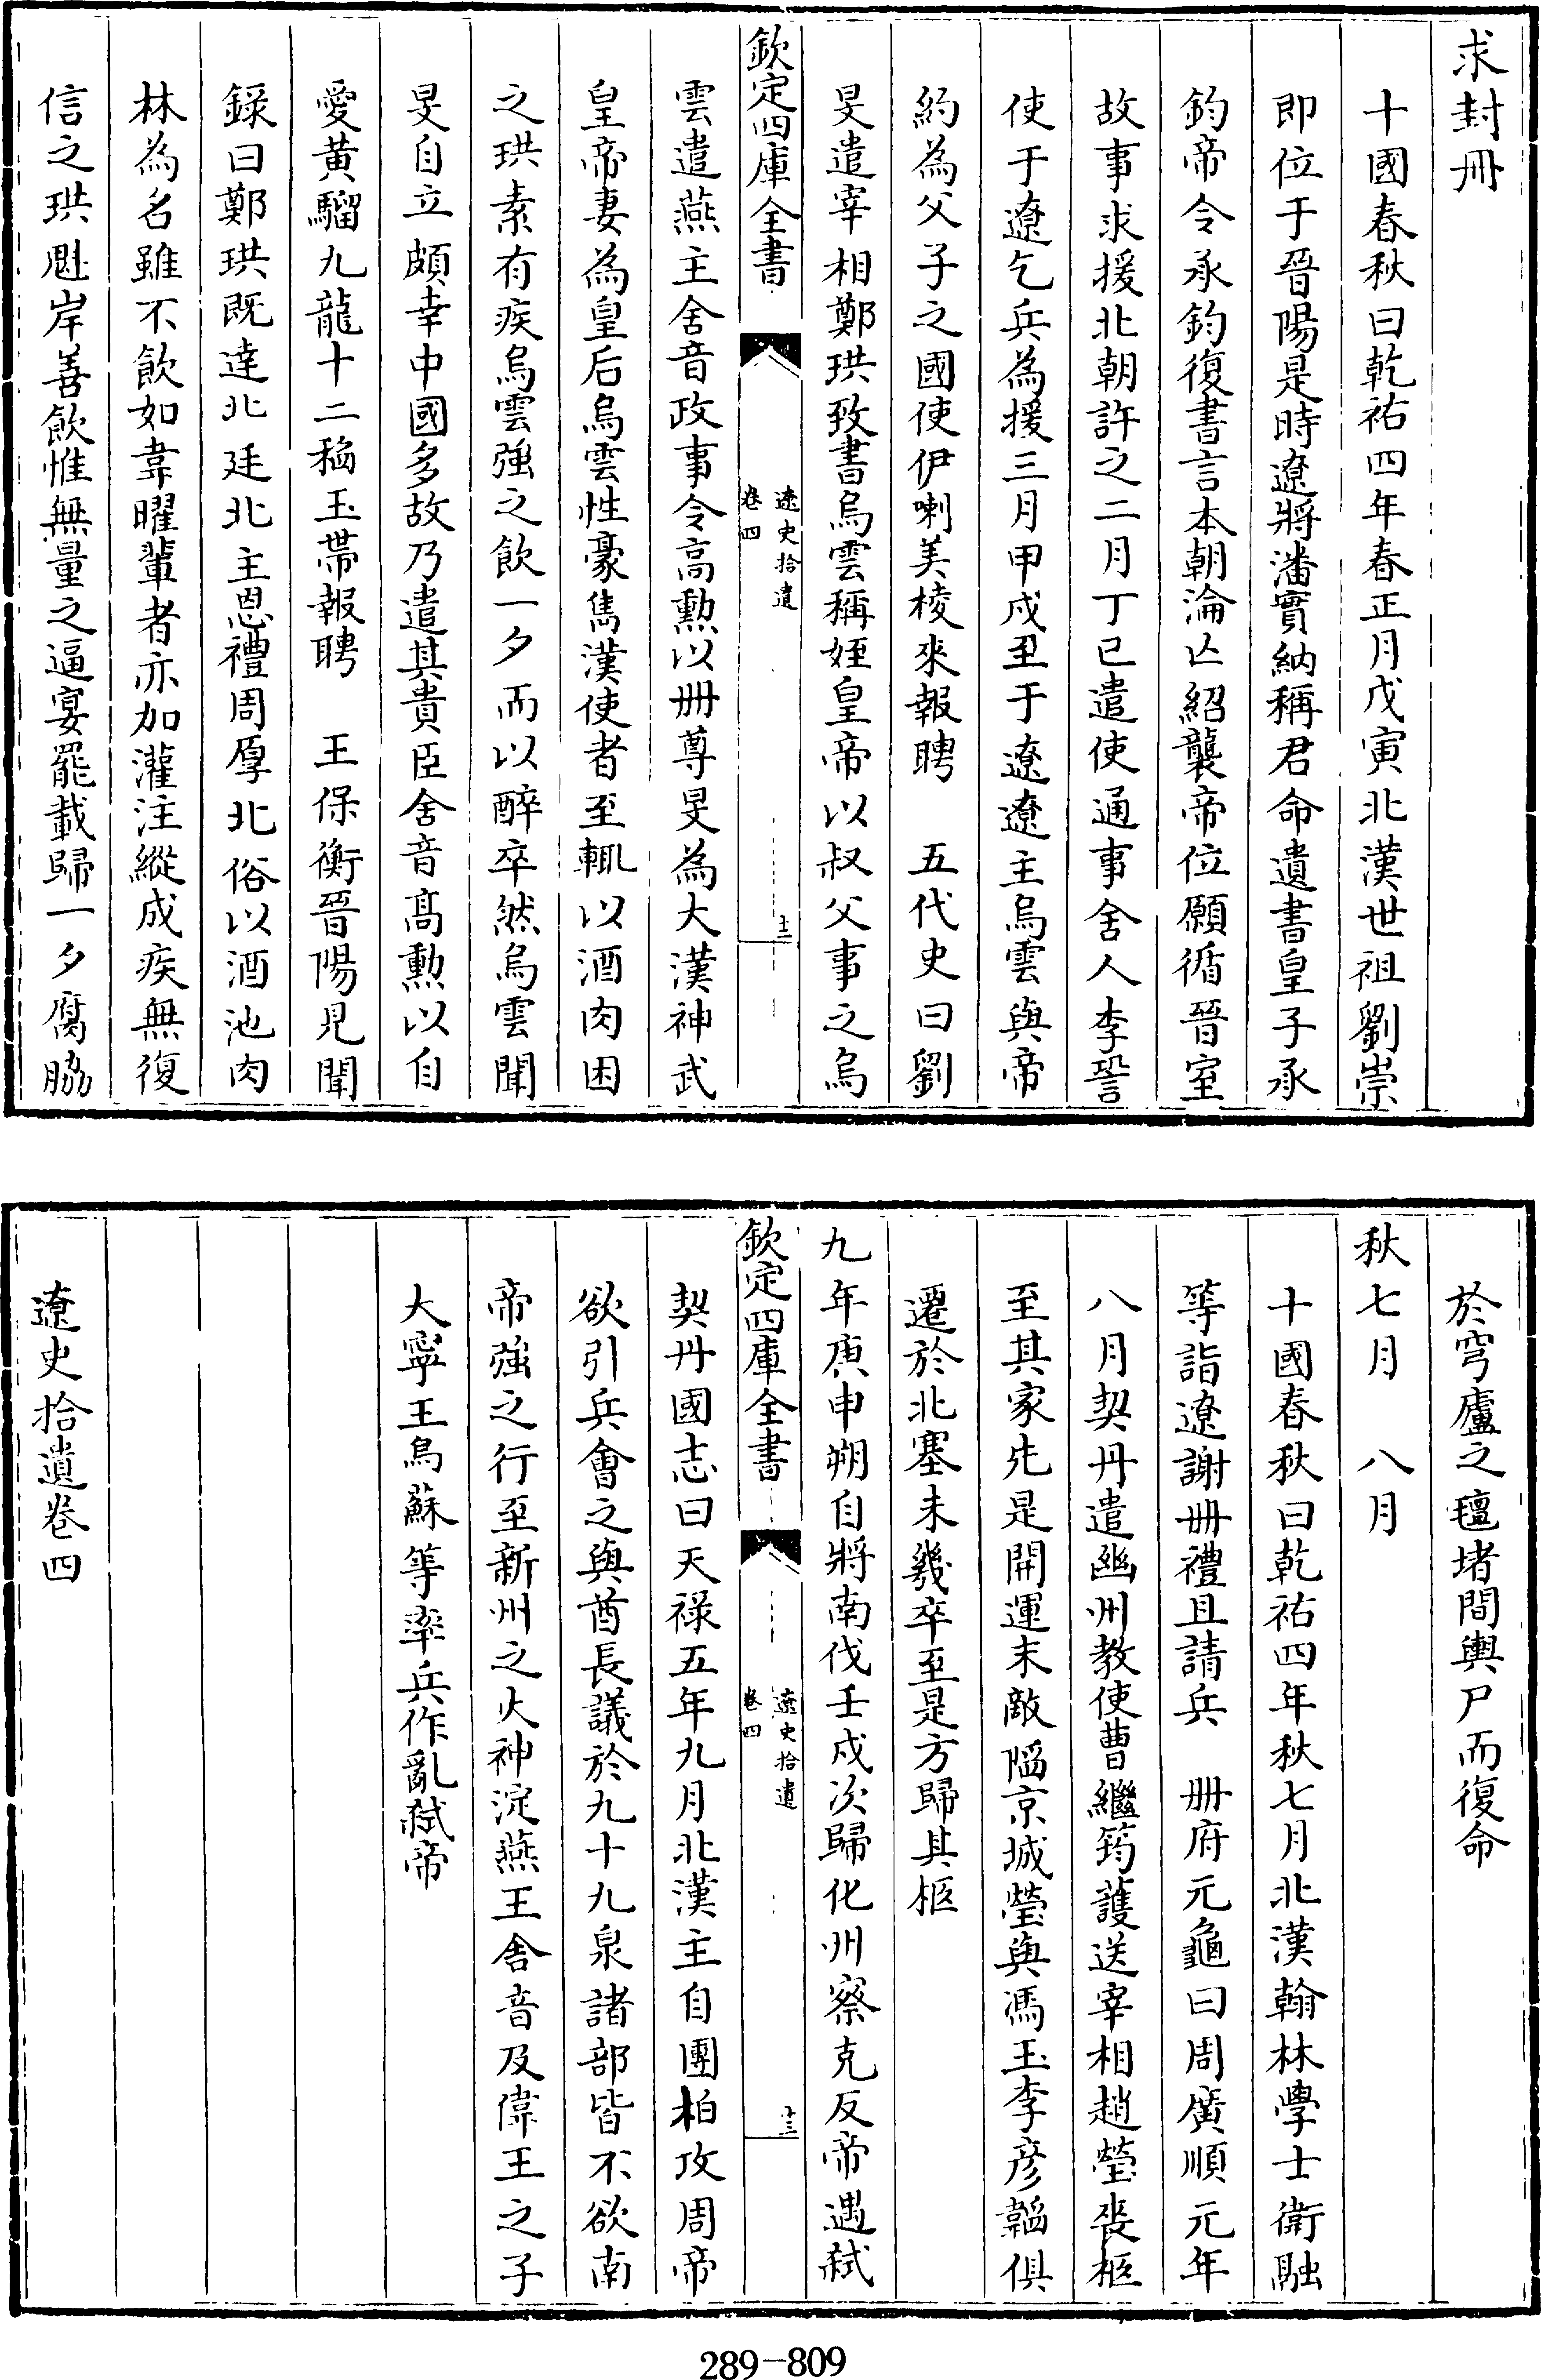 求封冊
十國春秋曰乾祐四年春正月戊寅北漢世祖劉崇
即位于晉陽是時遼將潘實納稱君命遺書皇子承
鈞帝令承鈞復書言本朝淪亡紹襲帝位願循晉室
故事求援北朝許之二月丁巳遣使通事舍人李䛒
使于遼乞兵為援三月甲戌至于遼遼主烏雲與帝
約為父子之國使伊喇美棱來報聘　五代史曰劉
旻遣宰相鄭珙致書烏雲稱姪皇帝以叔父事之烏
欽定四庫全書
遼史拾遺
卷四
十二
雲遣燕主舍音政事令高勲以冊尊旻為大漢神武
皇帝妻為皇后烏雲性豪雋漢使者至輒以酒肉困
之珙素有疾烏雲強之飲一夕而以醉卒然烏雲聞
旻自立頗幸中國多故乃遣其貴臣舍音高勲以自
愛黃騮九龍十二稲玉帶報聘　王保衡晉陽見聞
錄曰鄭珙既達北廷北主恩禮周厚北俗以酒池肉
林為名雖不飲如韋曜輩者亦加灌注縱成疾無復
信之珙魁岸善飲惟無量之逼宴罷載歸一夕腐脇
於穹廬之氊堵間輿尸而復命
秋七月　八月
十國春秋曰乾祐四年秋七月北漢翰林學士衛融
等詣遼謝冊禮且請兵　冊府元龜曰周廣順元年
八月契丹遣幽州教使曹繼筠護送宰相趙瑩喪柩
至其家先是開運末敵陷京城瑩與馮玉李彥韜俱
遷於北塞未幾卒至是方歸其柩
九年庚申朔自將南伐壬戌次歸化州察克反帝遇弒
欽定四庫全書
遼史拾遺
卷四
十三
契丹國志曰天祿五年九月北漢主自團柏攻周帝
欲引兵會之與酋長議於九十九泉諸部皆不欲南
帝強之行至新州之火神淀燕王舍音及偉王之子
大寧王烏蘇等率兵作亂弒帝
遼史拾遺卷四
289-809